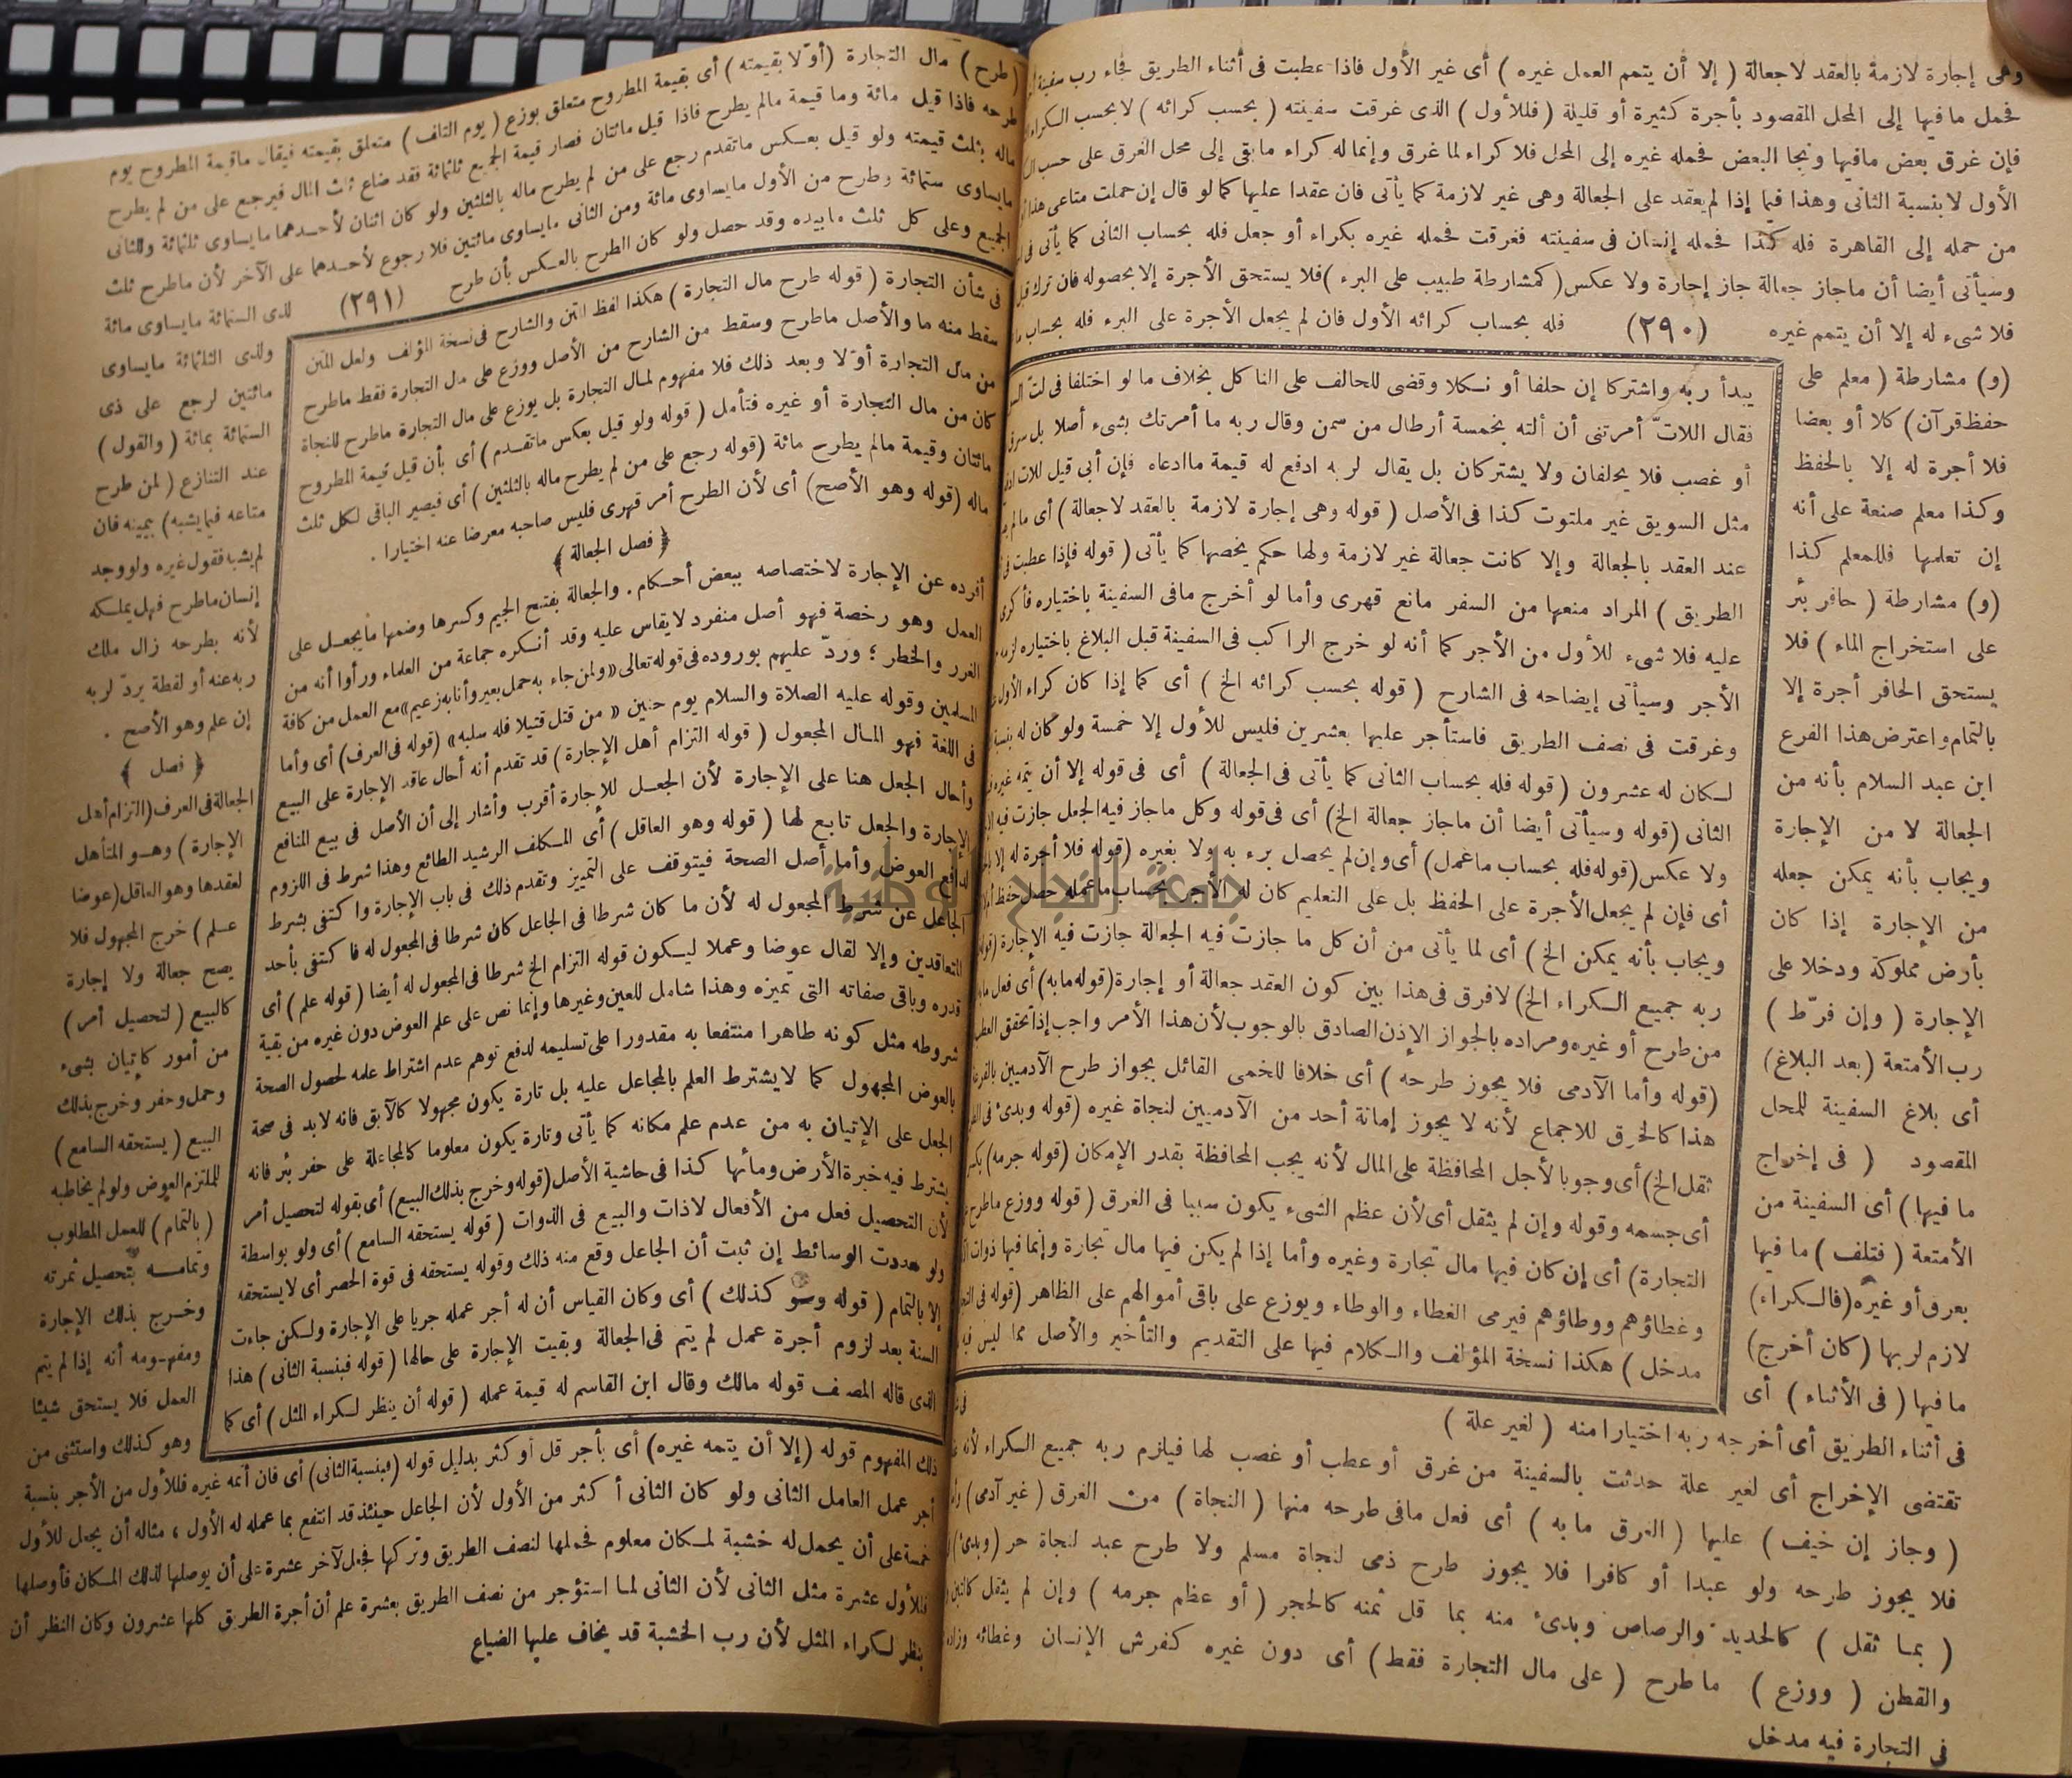 وهى إجارة لازمة بالعقد لا جعالة ( إلا أن يتمم العمل غيره ) أى غير الأول فاذا عطبت فى أثناء الطريق فجاء رب سفينة
فحمل ما فيها إلى المحل المقصود بأجرة كثيرة أو قليلة ( فللأول ) الذى غرقت سفينته ( بحسب كرائه ) لا بحسب الكراء
فإن غرق بعض مافيها ونجا البعض فحمله غيره إلى المحل فلا كراء لما غرق وإنما له كراء ما بقى إلى محل الغرق على حسب
الأول لا بنسبة الثانى وهذا فيما إذا لم يعقد على الجعالة وهى غير لازمة كما يأتى فان عقدا عليها كما لو قال إن حملت متاعى هذا
من حمله إلى القاهرة فله كذا فحمله إنسان فى سفينته فغرقت فحمله غيره بكراء أو جعل فله بحساب الثانى كما يأتى فى
وسيأتى أيضا أن ماجاز جعالة جاز إجارة ولا عكس ( كمشارطة طبيب على البرء ) فلا يستحق الأجرة إلا بحصوله فان ترك قبل
فلا شىء له إلا أن يتمم غيره (٢٩٠) فله بحساب كرائه الأول فان لم يجعل الأجرة على البرء فله بحساب
(و) مشارطة ( معلم على
حفظ قرآن ) كلا أو بعضا
فلا أجرة له إلا بالحفظ
وكذا معلم صنعة على أنه
إن تعلمها فللمعلم كذا
(و) مشارطة ( حافر بئر
على استخراج الماء ) فلا
يستحق الحافر أجرة إلا
بالتمام واعترض هذا الفرع
ابن عبد السلام بأنه من
الجعالة لا من الإجارة
ويجاب بأنه يمكن جعله
من الإجارة إذا كان
بأرض مملوكة ودخلا على
الإجارة ( وإن فرّط )
رب الأمتعة ( بعد البلاغ )
أى بلاغ السفينة للمحل
المقصود ( فى إخراج
ما فيها ) أى السفينة من
الأمتعة ( فتلف ) ما فيها
بغرق أو غيره ( فالكراء )
لازم لربها ( كان أخرج )
ما فيها ( فى الأثناء ) أى
يبدأ ربه واشتركا إن حلفا أو نكلا وقضى للحالف على الناكل بخلاف ما لو اختلفا فى لتّ
فقال اللاتّ أمرتنى أن ألته بخمسة أرطال من سمن وقال ربه ما أمرتك بشىء أصلا بل سرق
أو غصب فلا يحلفان ولا يشتركان بل يقال لربه ادفع له قيمة ما ادعاه فإن أبى قيل للات
مثل السويق غير ملتوت كذا فى الأصل ( قوله وهى إجارة لازمة بالعقد لا جعالة ) أى ما لم
عند العقد بالجعالة وإلا كانت جعالة غير لازمة ولها حكم يخصها كما يأتى ( قوله فإذا عطبت فى
الطريق ) المراد منعها من السفر مانع قهرى وأما لو أخرج مافى السفينة باختياره فأكرى
عليه فلا شىء للأول من الأجر كما أنه لو خرج الراكب فى السفينة قبل البلاغ باختياره لزمه
الأجر وسيأتى إيضاحه فى الشارح ( قوله بحسب كرائه الخ ) أى كما إذا كان كراء الأول
وغرقت فى نصف الطريق فاستأجر عليها بعشرين فليس للأول إلا خمسة ولو كان له بنسبة
لكان له عشرون ( قوله فله بحساب الثانى كما يأتى فى الجعالة ) أى فى قوله إلا أن يتمه غيره
الثانى ( قوله وسيأتى أيضا أن ماجاز جعالة الخ ) أى فى قوله وكل ماجاز فيه الجعل جازت فيه
ولا عكس ( قوله فله بحساب ما عمل ) أى وإن لم يحصل برء به ولا بغيره ( قوله فلا أجرة له إلا
أى فإن لم يجعل الأجرة على الحفظ بل على التعليم كان له الأجر بحساب ما عمله حصل حفظ أم
ويجاب بأنه يمكن الخ ) أى لما يأتى من أن كل ما جازت فيه الجعالة جازت فيه الإجارة ( قوله
ربه جميع الكراء الخ ) لا فرق فى هذا بين كون العقد جعالة أو إجارة ( قوله ما به ) أى فعل ما
من طرح أو غيره ومراده بالجواز الإذن الصادق بالوجوب لأن هذا الأمر واجب إذا تحقق
( قوله وأما الآدمى فلا يجوز طرحه ) أى خلافا للخمى القائل بجواز طرح الآدميين بالقرعة
هذا كالخرق للاجماع لأنه لا يجوز إماتة أحد من الآدميين لنجاة غيره ( قوله وبدئ
ثقل الخ ) أى وجوبا لأجل المحافظة على المال لأنه يجب المحافظة بقدر الإمكان ( قوله جرمه )
أى جسمه وقوله وإن لم يثقل أى لأن عظم الشىء يكون سببا فى الغرق ( قوله ووزع ماطرح
التجارة ) أى إن كان فيها مال تجارة وغيره وأما إذا لم يكن فيها مال تجارة وإنما فيها ذوات
وغطاؤهم ووطاؤهم فيرمى الغطاء والوطاء ويوزع على باقى أموالهم على الظاهر ( قوله فى
مدخل ) هكذا نسخة المؤلف والكلام فيها على التقديم والتأخير والأصل مما ليس فيه
فى أثناء الطريق أى أخرجه ربه اختيارا منه ( لغير علة )
تقتضى الإخراج أى لغير علة حدثت بالسفينة من غرق أو عطب أو غصب لها فيلزم ربه جميع الكراء لأنه
( وجاز إن خيف ) عليها ( الغرق ما به ) أى فعل مافى طرحه منها ( النجاة ) من الغرق ( غير آدمى )
فلا يجوز طرحه ولو عبدا أو كافرا فلا يجوز طرح ذمى لنجاة مسلم ولا طرح عبد لنجاة حر ( وبدئ )
( بما ثقل ) كالحديد والرصاص وبدئ منه بما قل ثمنه كالحجر ( أو عظم جرمه ) وإن لم يثقل كالتبن
والقطن ( ووزع ) ما طرح ( على مال التجارة فقط ) أى دون غيره كفرش الإنسان وغطائه وزاده
فى التجارة فيه مدخل
( طرح ) مال التجارة ( أوّلا بقيمته ) أى بقيمة المطروح متعلق بوزع ( يوم التلف ) متعلق بقيمته فيقال ماقيمة المطروح يوم
طرحه فاذا قيل مائة وما قيمة مالم يطرح فاذا قيل مائتان فصار قيمة الجميع ثلثمائة فقد ضاع ثلث المال فيرجع على من لم يطرح
ماله بثلث قيمته ولو قيل بعكس ماتقدم رجع على من لم يطرح ماله بالثلثين ولو كان اثنان لأحدهما مايساوى ثلثمائة وللثانى
مايساوى ستمائة وطرح من الأول مايساوى مائة ومن الثانى مايساوى مائتين فلا رجوع لأحدهما على الآخر لأن ماطرح ثلث
الجميع وعلى كل ثلث مابيده وقد حصل ولو كان الطرح بالعكس بأن طرح (٢٩١) لذى الستمائة مايساوى مائة
ولذى الثلثمائة مايساوى
مائتين لرجع على ذى
الستمائة بمائة ( والقول )
عند التنازع ( لمن طرح
متاعه فيما يشبه ) بيمينه فان
لم يشبه فقول غيره ولو وجد
إنسان ماطرح فهل يملكه
لأنه بطرحه زال ملك
ربه عنه أو لقطة يردّ لربه
إن علم وهو الأصح .
﴿ فصل ﴾
الجعالة فى العرف ( التزام أهل
الإجارة ) وهو المتأهل
لعقدها وهو العاقل ( عوضا
علم ) خرج المجهول فلا
يصح جعالة ولا إجارة
كالبيع ( لتحصيل أمر )
من أمور كإتيان بشىء
وحمل وحفر وخرج بذلك
البيع ( يستحقه السامع )
للملتزم العوض ولو لم يخاطبه
( بالتمام ) للعمل المطلوب
وتمامه بتحصيل ثمرته
وخرج بذلك الإجارة
ومفهومه أنه إذا لم يتم
العمل فلا يستحق شيئا
وهو كذلك واستثنى من
فى شأن التجارة ( قوله طرح مال التجارة ) هكذا لفظ المتن والشارح فى نسخة المؤلف ولعل المتن
سقط منه ما والأصل ماطرح وسقط من الشارح من الأصل ووزع على مال التجارة فقط ماطرح
من مال التجارة أوّلا وبعد ذلك فلا مفهوم لمال التجارة بل يوزع على مال التجارة ماطرح للنجاة
كان من مال التجارة أو غيره فتأمل ( قوله ولو قيل بعكس ماتقدم ) أى بأن قيل قيمة المطروح
مائتان وقيمة مالم يطرح مائة ( قوله رجع على من لم يطرح ماله بالثلثين ) أى فيصير الباقى لكل ثلث
ماله ( قوله وهو الأصح ) أى لأن الطرح أمر قهرى فليس صاحبه معرضا عنه اختيارا .
﴿ فصل الجعالة ﴾
أفرده عن الإجارة لاختصاصه ببعض أحكام . والجعالة بفتح الجيم وكسرها وضمها مايجعل على
العمل وهو رخصة فهو أصل منفرد لا يقاس عليه وقد أنكره جماعة من العلماء ورأوا أنه من
الغرر والخطر ؛ وردّ عليهم بوروده فى قوله تعالى « ولمن جاء به حمل بعير وأنا به زعيم » مع العمل من كافة
المسلمين وقوله عليه الصلاة والسلام يوم حنين « من قتل قتيلا فله سلبه » ( قوله فى العرف ) أى وأما
فى اللغة فهو المال المجعول ( قوله التزام أهل الإجارة ) قد تقدم أنه أحال عاقد الإجارة على البيع
وأحال الجعل هنا على الإجارة لأن الجعل للإجارة أقرب وأشار إلى أن الأصل فى بيع المنافع
الإجارة والجعل تابع لها ( قوله وهو العاقل ) أى المكلف الرشيد الطائع وهذا شرط فى اللزوم
لدافع العوض وأما أصل الصحة فيتوقف على التمييز وتقدم ذلك فى باب الإجارة واكتفى بشرط
الجاعل عن شرط المجعول له لأن ما كان شرطا فى الجاعل كان شرطا فى المجعول له فاكتفى بأحد
المتعاقدين وإلا لقال عوضا وعملا ليكون قوله التزام الخ شرطا فى المجعول له أيضا ( قوله علم ) أى
قدره وباقى صفاته التى تميزه وهذا شامل للعين وغيرها وإنما نص على علم العوض دون غيره من بقية
شروطه مثل كونه طاهرا منتفعا به مقدورا على تسليمه لدفع توهم عدم اشتراط علمه لحصول الصحة
بالعوض المجهول كما لا يشترط العلم بالمجاعل عليه بل تارة يكون مجهولا كالآبق فانه لابد فى صحة
الجعل على الإتيان به من عدم علم مكانه كما يأتى وتارة يكون معلوما كالمجاعلة على حفر بئر فانه
يشترط فيه خبرة الأرض ومائها كذا فى حاشية الأصل ( قوله وخرج بذلك البيع ) أى بقوله لتحصيل أمر
لأن التحصيل فعل من الأفعال لا ذات والبيع فى الذوات ( قوله يستحقه السامع ) أى ولو بواسطة
ولو تعددت الوسائط إن ثبت أن الجاعل وقع منه ذلك وقوله يستحقه فى قوة الحصر أى لا يستحقه
إلا بالتمام ( قوله وهو كذلك ) أى وكان القياس أن له أجر عمله جريا على الإجارة ولكن جاءت
السنة بعد لزوم أجرة عمل لم يتم فى الجعالة وبقيت الإجارة على حالها ( قوله فبنسبة الثانى ) هذا
الذى قاله المصنف قوله مالك وقال ابن القاسم له قيمة عمله ( قوله أن ينظر لكراء المثل ) أى كما
ذلك المفهوم قوله ( إلا أن يتمه غيره ) أى بأجر قل أو كثر بدليل قوله ( فبنسبة الثانى ) أى فان أتمه غيره فللأول من الأجر بنسبة
أجر عمل العامل الثانى ولو كان الثانى أكثر من الأول لأن الجاعل حينئذ قد انتفع بما عمله له الأول ، مثاله أن يجعل للأول
خمسة على أن يحمل له خشبة لمكان معلوم فحملها لنصف الطريق وتركها فجعل لآخر عشرة على أن يوصلها لذلك المكان فأوصلها
فللأول عشرة مثل الثانى لأن الثانى لما استؤجر من نصف الطريق بعشرة علم أن أجرة الطريق كلها عشرون وكان النظر أن
ينظر لكراء المثل لأن رب الخشبة قد يخاف عليها الضياع
جامعة النجاح الوطنية